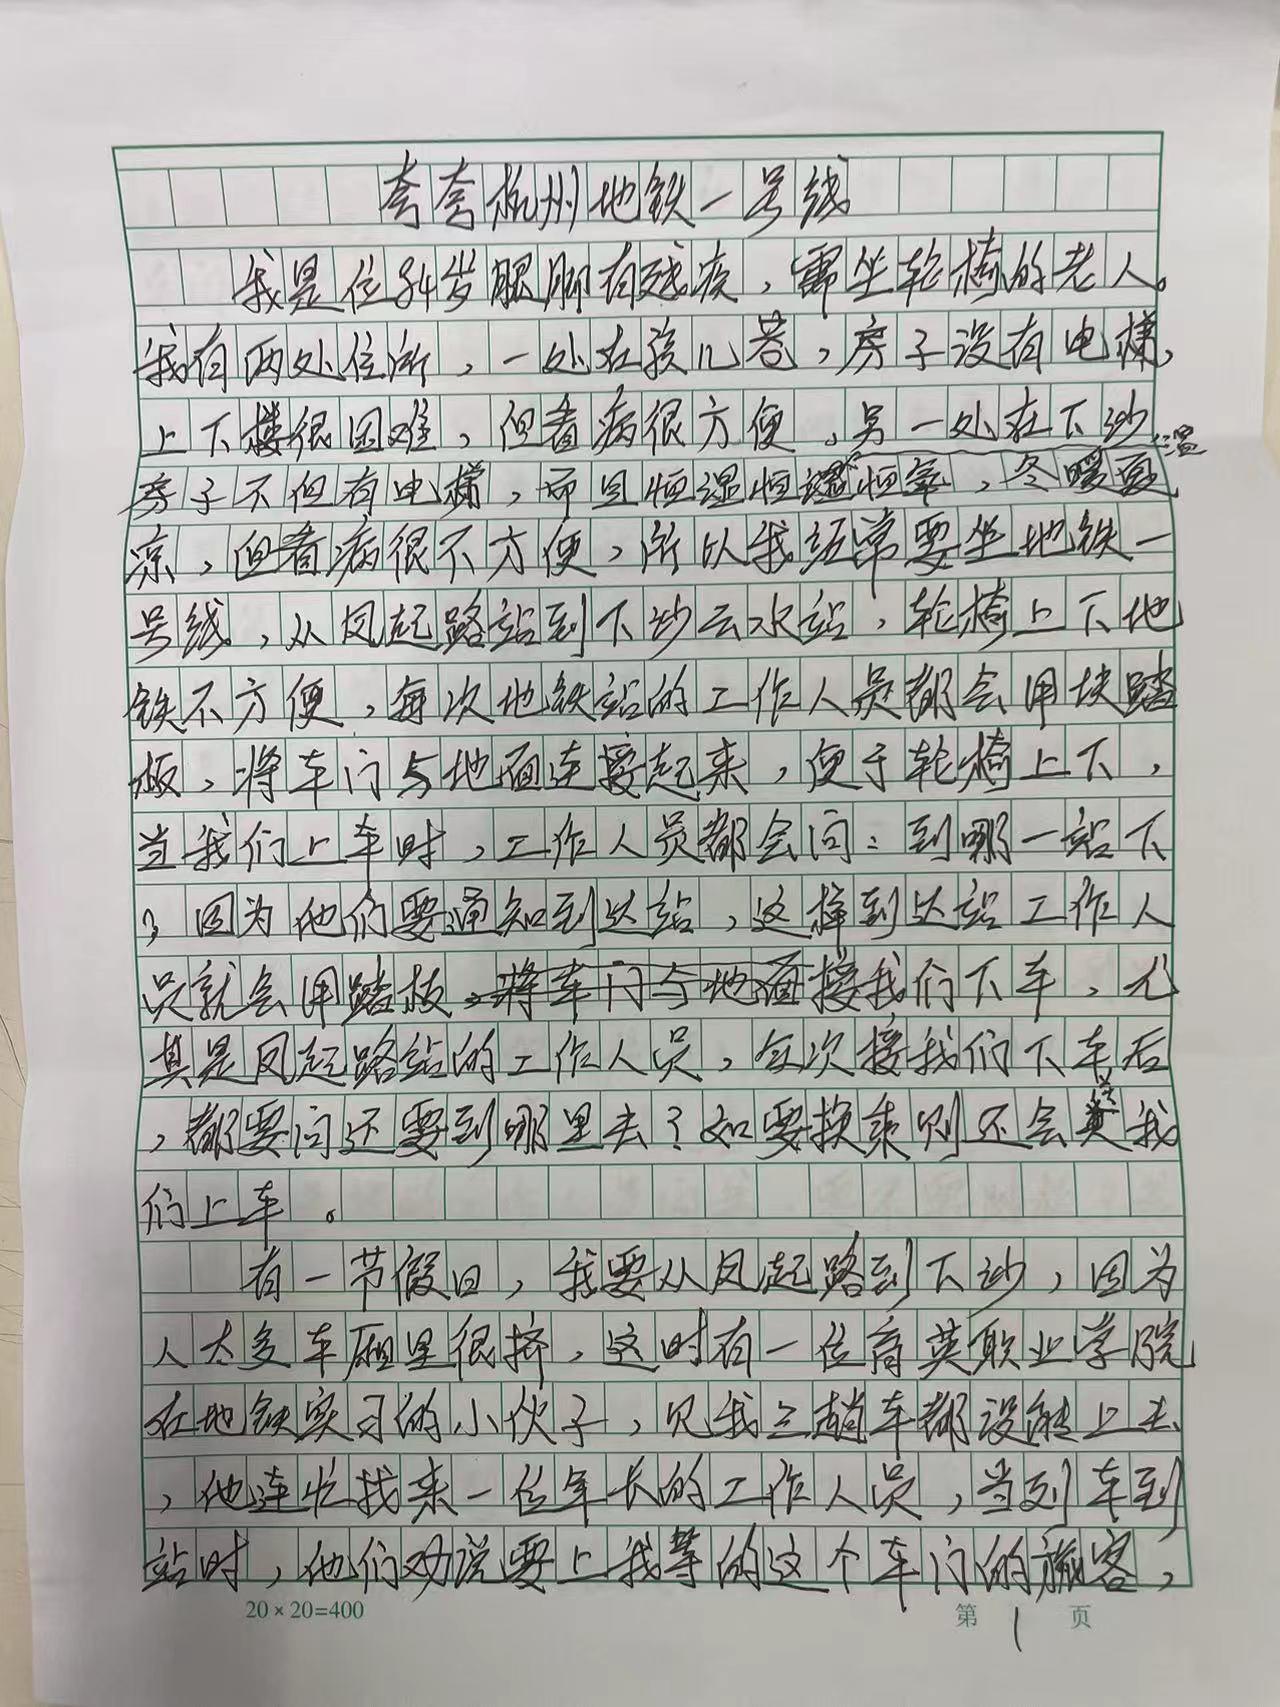 夸夸杭州地铁一号线
我是位84岁腿脚有残疾，需坐轮椅的老人。
我有两处住所，一处在孩儿巷，房子没有电梯，
上下楼很困难，但看病很方便，另一处在下沙，
房子不但有电梯，而且恒温恒湿恒氧，冬暖夏
凉，但看病很不方便，所以我经常要坐地铁一
号线，从凤起路站到下沙云水站，轮椅上下地
铁不方便，每次地铁站的工作人员都会用块踏
板，将车门与地面连接起来，便于轮椅上下，
当我们上车时，工作人员都会问：到哪一站下
？因为他们要通知到达站，这样到达站工作人
员就会用踏板，将车门与地面接我们下车，尤
其是凤起路站的工作人员，每次接我们下车后
，都要问还要到哪里去？如要换乘则还会送我
们上车。
有一节假日，我要从凤起路到下沙，因为
人太多车厢里很挤，这时有一位育英职业学院
在地铁实习的小伙子，见我三趟车都没能上去
，他连忙找来一位年长的工作人员，当列车到
站时，他们劝说要上我等的这个车门的旅客，
20×20=400
第 1 页